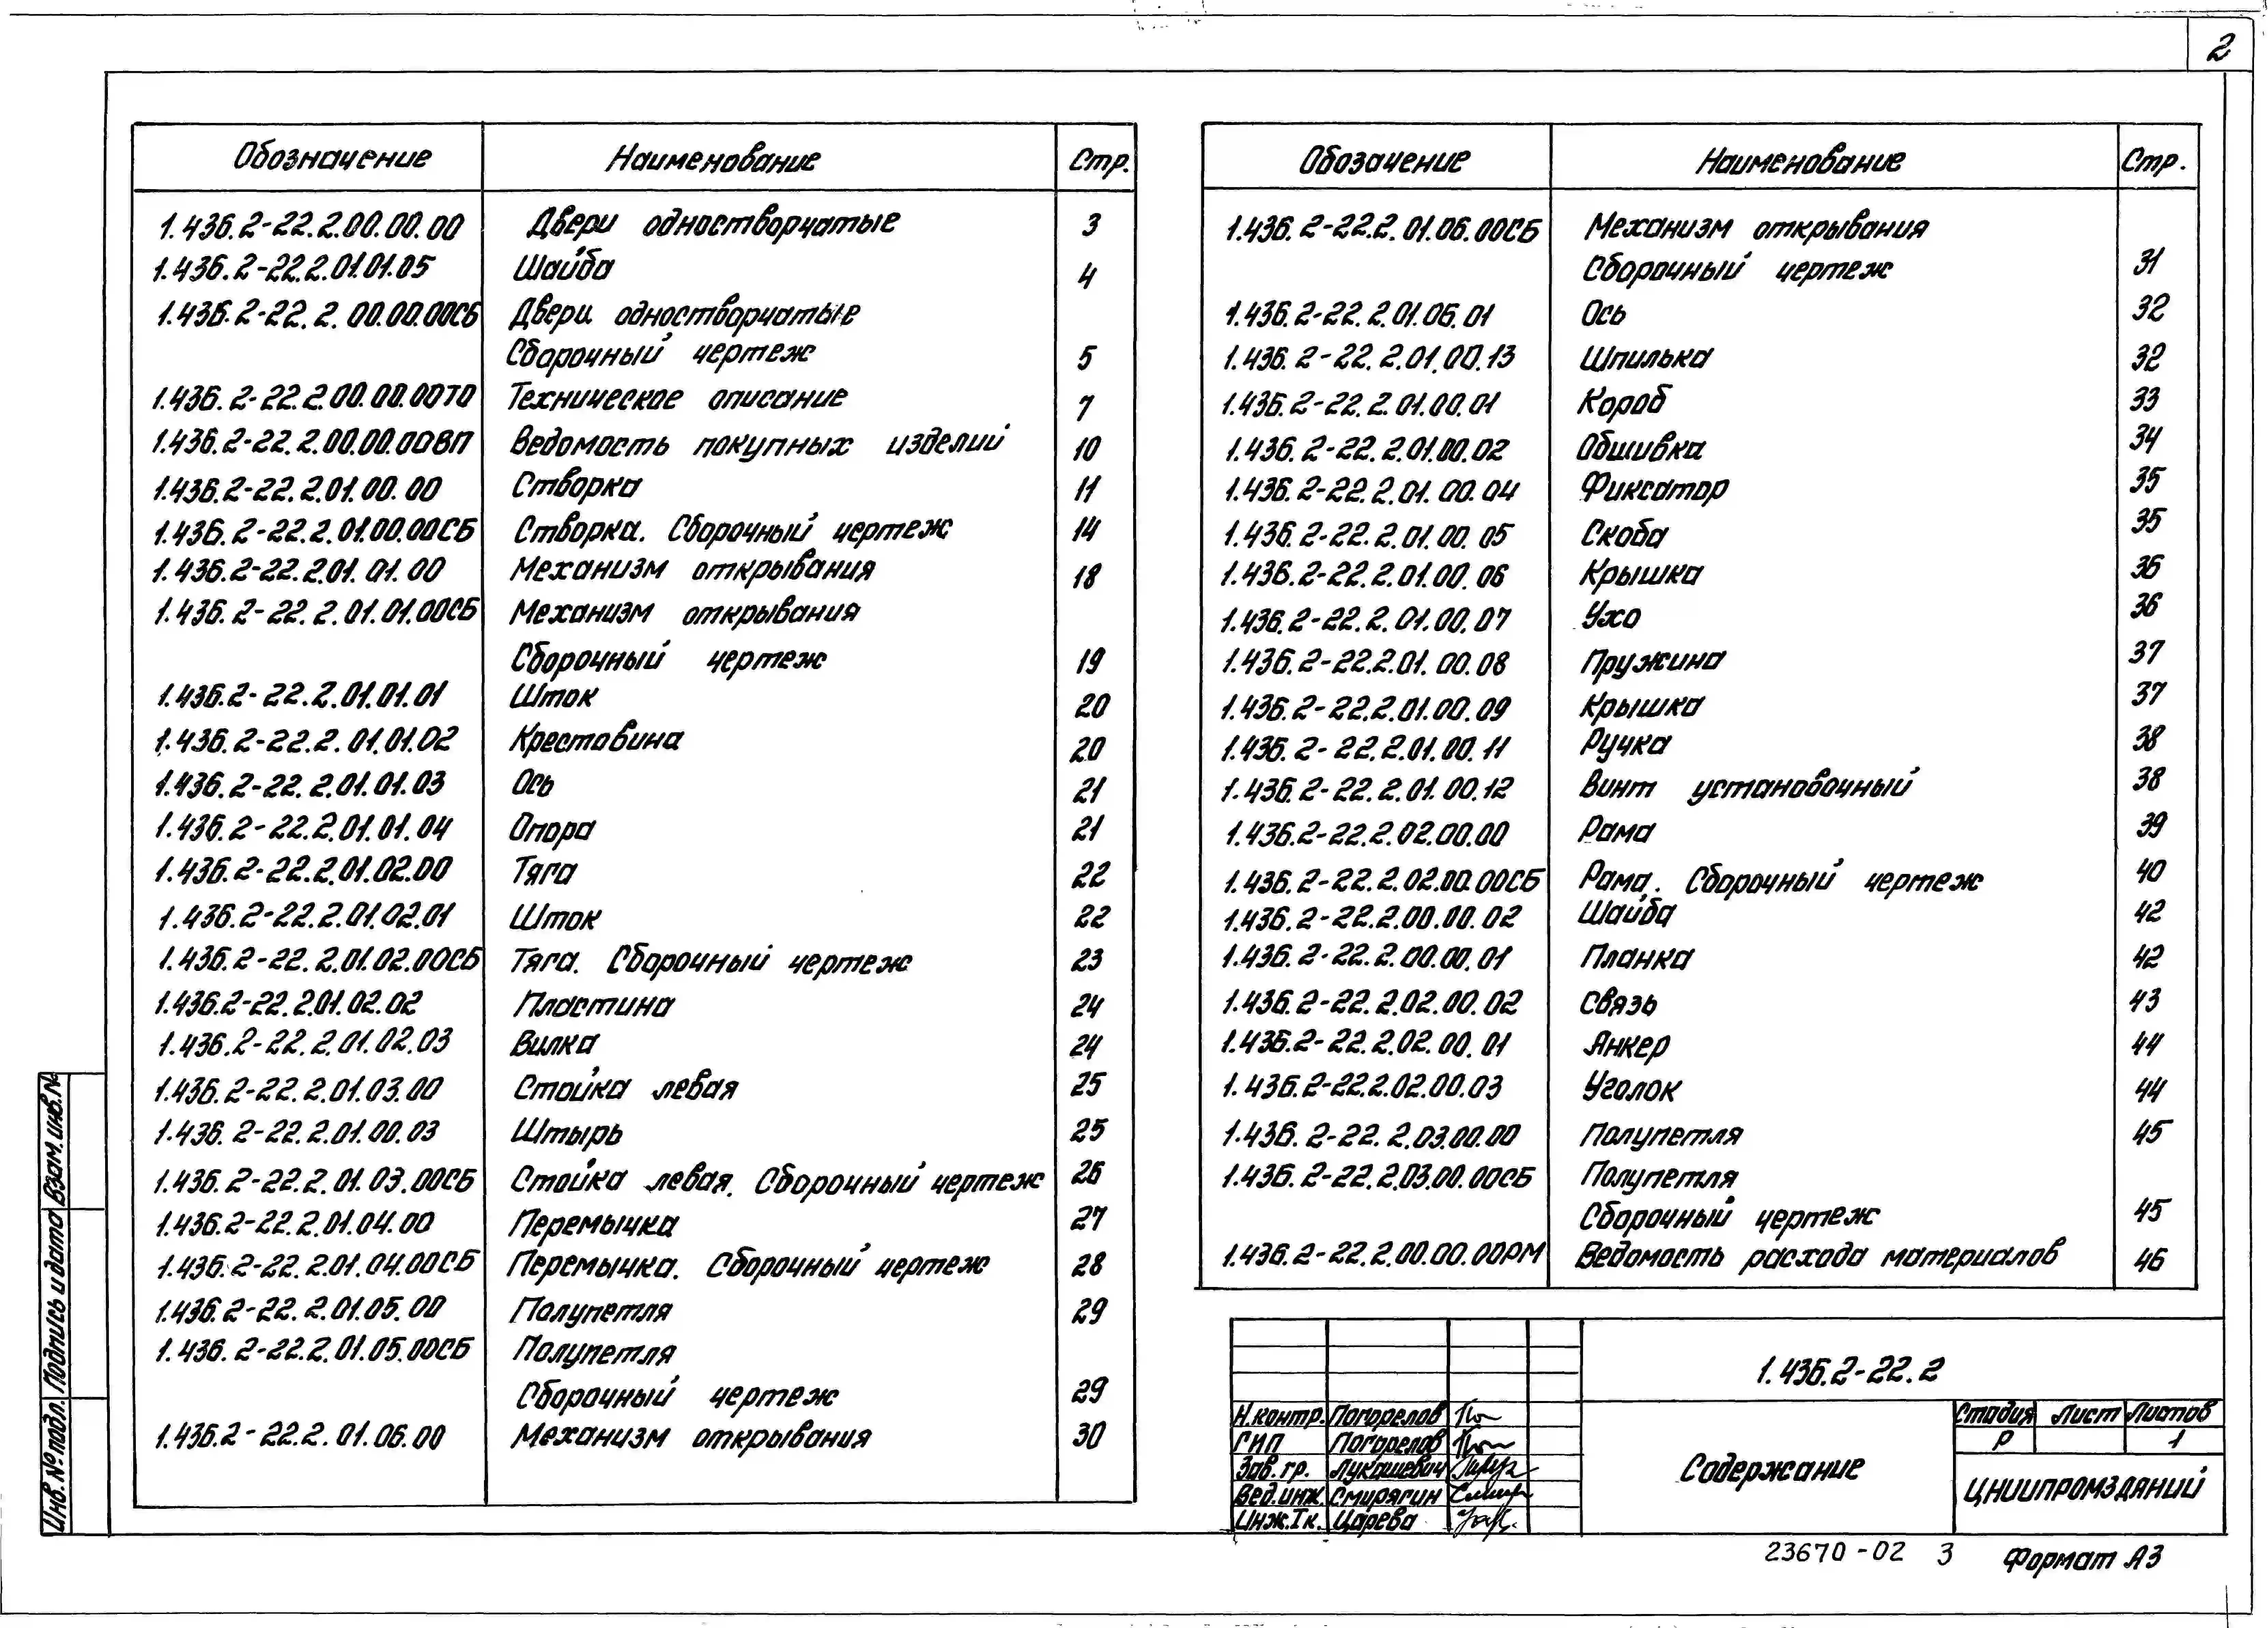 2
Обозначение Наименование Стр.
1.436.2-22.2.00.00.00 Двери одностворчатые 3
1.436.2-22.2.01.01.05 Шайба 4
1.436.2-22.2.00.00.00СБ Двери одностворчатые
Сборочный чертеж 5
1.436.2-22.2.00.00.00ТО Техническое описание 7
1.436.2-22.2.00.00.00ВП Ведомость покупных изделий 10
1.436.2-22.2.01.00.00 Створка 11
1.436.2-22.2.01.00.00СБ Створка. Сборочный чертеж 14
1.436.2-22.2.01.01.00 Механизм открывания 18
1.436.2-22.2.01.01.00СБ Механизм открывания
Сборочный чертеж 19
1.436.2-22.2.01.01.01 Шток 20
1.436.2-22.2.01.01.02 Крестовина 20
1.436.2-22.2.01.01.03 Ось 21
1.436.2-22.2.01.01.04 Опора 21
1.436.2-22.2.01.02.00 Тяга 22
1.436.2-22.2.01.02.01 Шток 22
1.436.2-22.2.01.02.00СБ Тяга. Сборочный чертеж 23
1.436.2-22.2.01.02.02 Пластина 24
1.436.2-22.2.01.02.03 Вилка 24
1.436.2-22.2.01.03.00 Стойка левая 25
1.436.2-22.2.01.00.03 Штырь 25
1.436.2-22.2.01.03.00СБ Стойка левая. Сборочный чертеж 26
1.436.2-22.2.01.04.00 Перемычка 27
1.436.2-22.2.01.04.00СБ Перемычка. Сборочный чертеж 28
1.436.2-22.2.01.05.00 Полупетля 29
1.436.2-22.2.01.05.00СБ Полупетля
Сборочный чертеж 29
1.436.2-22.2.01.06.00 Механизм открывания 30
Обозачение Наименование Стр.
1.436.2-22.2.01.06.00СБ Механизм открывания
Сборочный чертеж 31
1.436.2-22.2.01.06.01 Ось 32
1.436.2-22.2.01.00.13 Шпилька 32
1.436.2-22.2.01.00.01 Короб 33
1.436.2-22.2.01.00.02 Обшивка 34
1.436.2-22.2.01.00.04 Фиксатор 35
1.436.2-22.2.01.00.05 Скоба 35
1.436.2-22.2.01.00.06 Крышка 36
1.436.2-22.2.01.00.07 Ухо 36
1.436.2-22.2.01.00.08 Пружина 37
1.436.2-22.2.01.00.09 Крышка 37
1.436.2-22.2.01.00.11 Ручка 38
1.436.2-22.2.01.00.12 Винт установочный 38
1.436.2-22.2.02.00.00 Рама 39
1.436.2-22.2.02.00.00СБ Рама. Сборочный чертеж 40
1.436.2-22.2.00.00.02 Шайба 42
1.436.2-22.2.00.00.01 Планка 42
1.436.2-22.2.02.00.02 Связь 43
1.436.2-22.2.02.00.01 Анкер 44
1.436.2-22.2.02.00.03 Уголок 44
1.436.2-22.2.03.00.00 Полупетля 45
1.436.2-22.2.03.00.00СБ Полупетля
Сборочный чертеж 45
1.436.2-22.2.00.00.00РМ Ведомость расхода материалов 46
1.436.2-22.2
Н.контр. Погорелов
ГИП Погорелов
Зав.гр. Лукашевич
Вед.инж. Смирягин
Инж.Iк. Царева
Содержание
Стадия Лист Листов
Р 1
ЦНИИПРОМЗДАНИЙ
23670-02 3 Формат А3
Инв.№подл. Подпись и дата Взам.инв.№